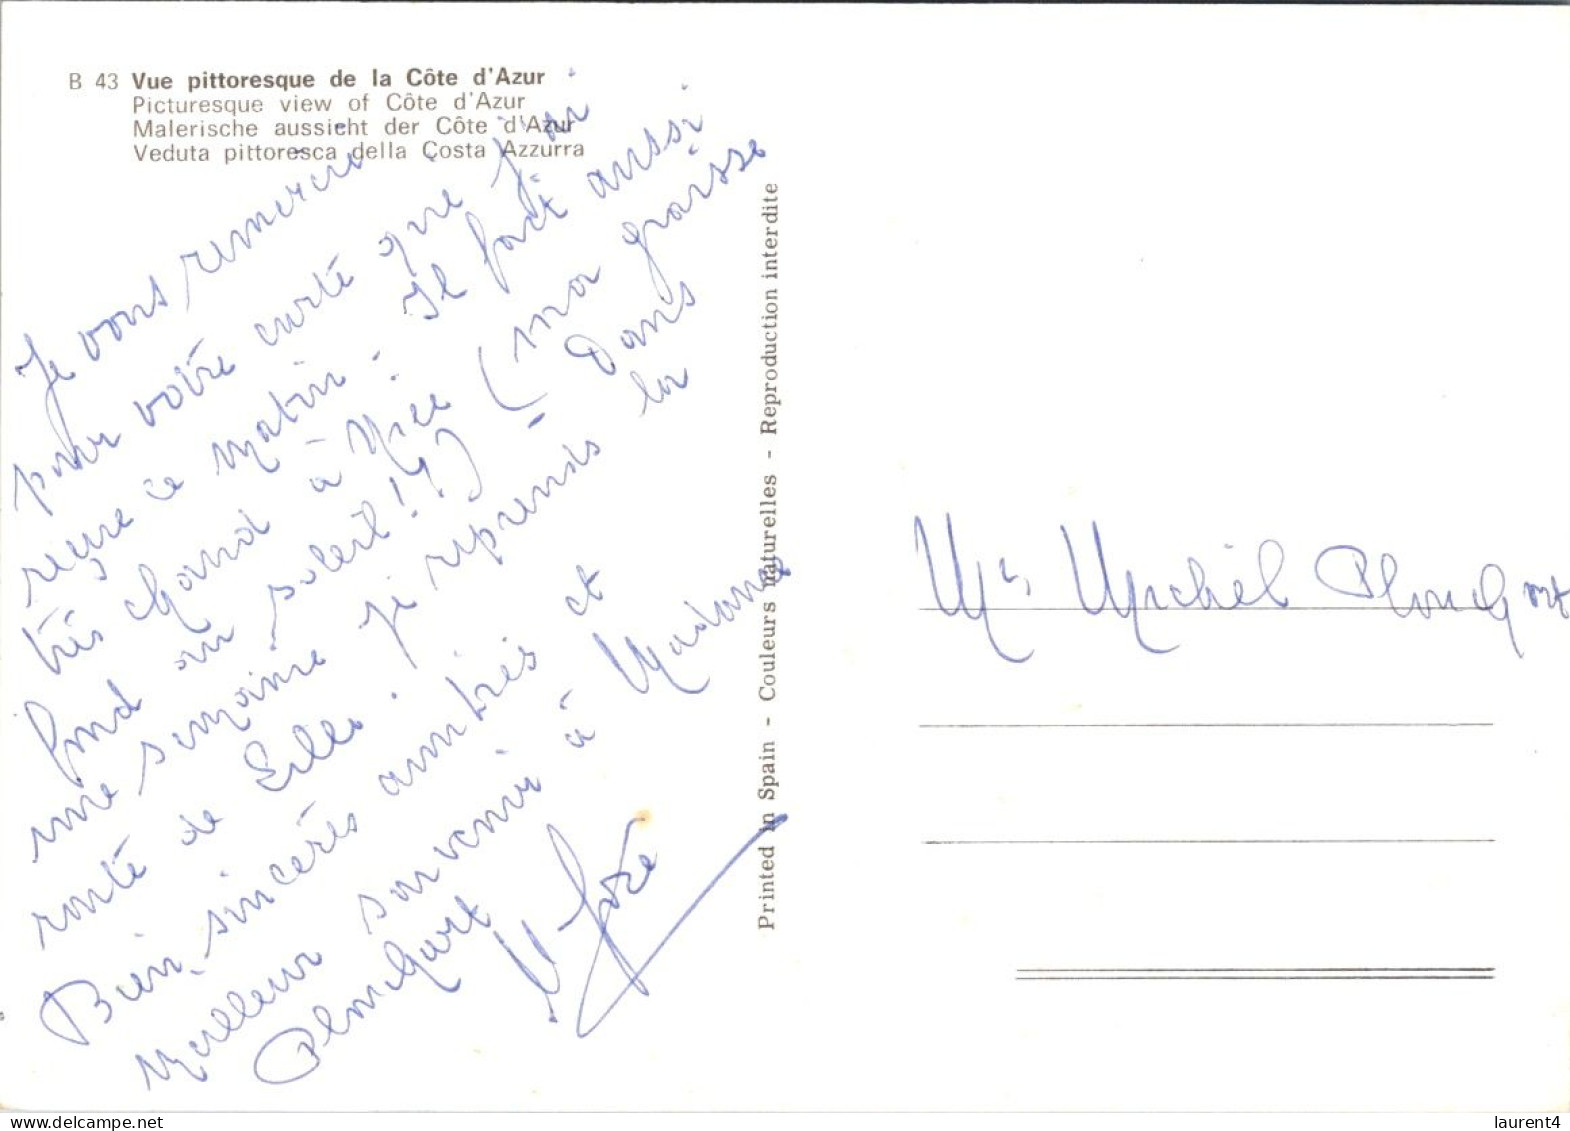 B 43 Vue pittoresque de la Côte d'Azur
Picturesque view of Côte d'Azur
Malerische aussicht der Côte d'Azur
Veduta pittoresca della Costa Azzurra
Je vous remercie
pour votre carte que j'ai
reçue ce matin. Il fait aussi
très chaud à Nice (ma graisse
fond au soleil!!) - Dans
une semaine je reprends la
route de Lille.
Bien sincères amitiés et
meilleur souvenir à Madame
Plouquart
Mr Michel
Printed in Spain - Couleurs naturelles - Reproduction interdite
delcampe.net
laurent4